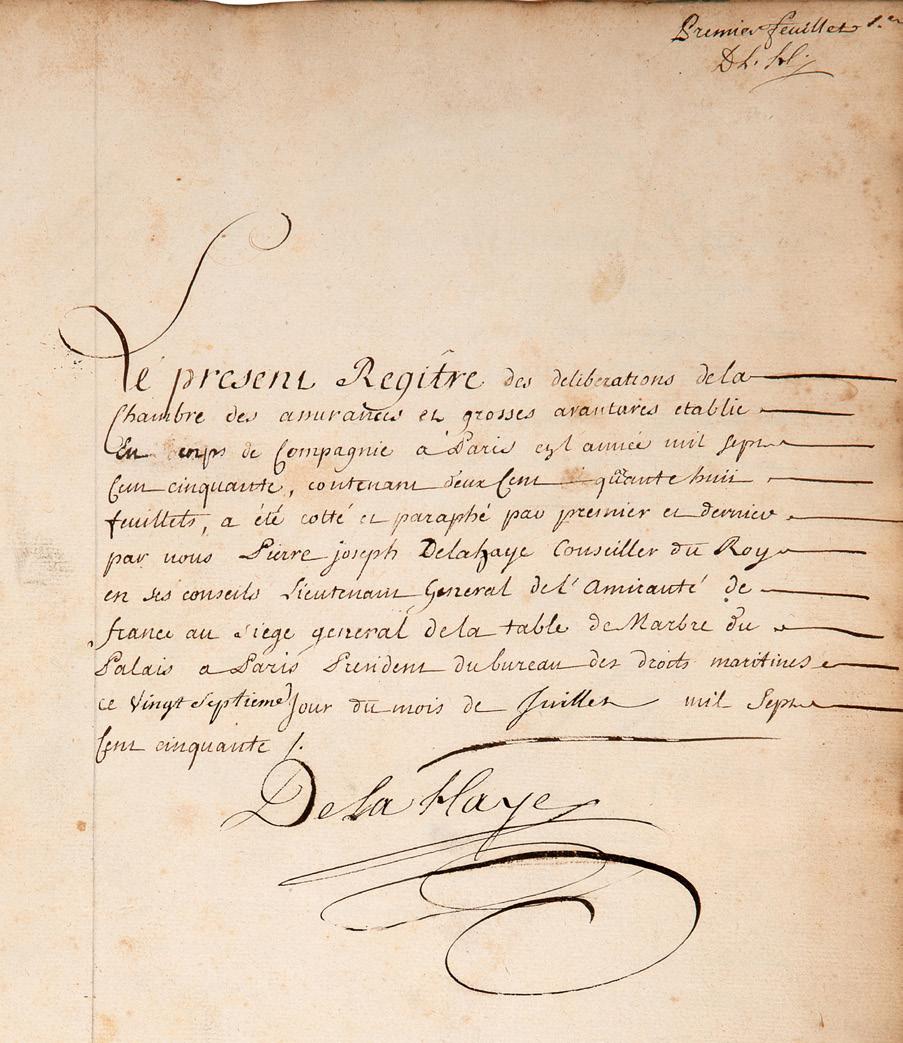 Premier feuillet 1.er
D L. H.
Le present Regître des deliberations dela
Chambre des assurances et grosses avantures etablie
En corps de Compagnie a Paris
mil sept
Cent cinquante, contenant deux Cent quante huit
feuillets, a été cotté et paraphé par premier et dernier
par nous Pierre joseph Delahaye Conseiller du Roy
en ses conseils Lieutenant General de l'Amirauté de
france au Siege general dela table de Marbre du
Palais a Paris President du bureau des droits maritimes
ce Vingt Septieme Jour du mois de Juillet mil Sept
Cent cinquante /.
De la Haye